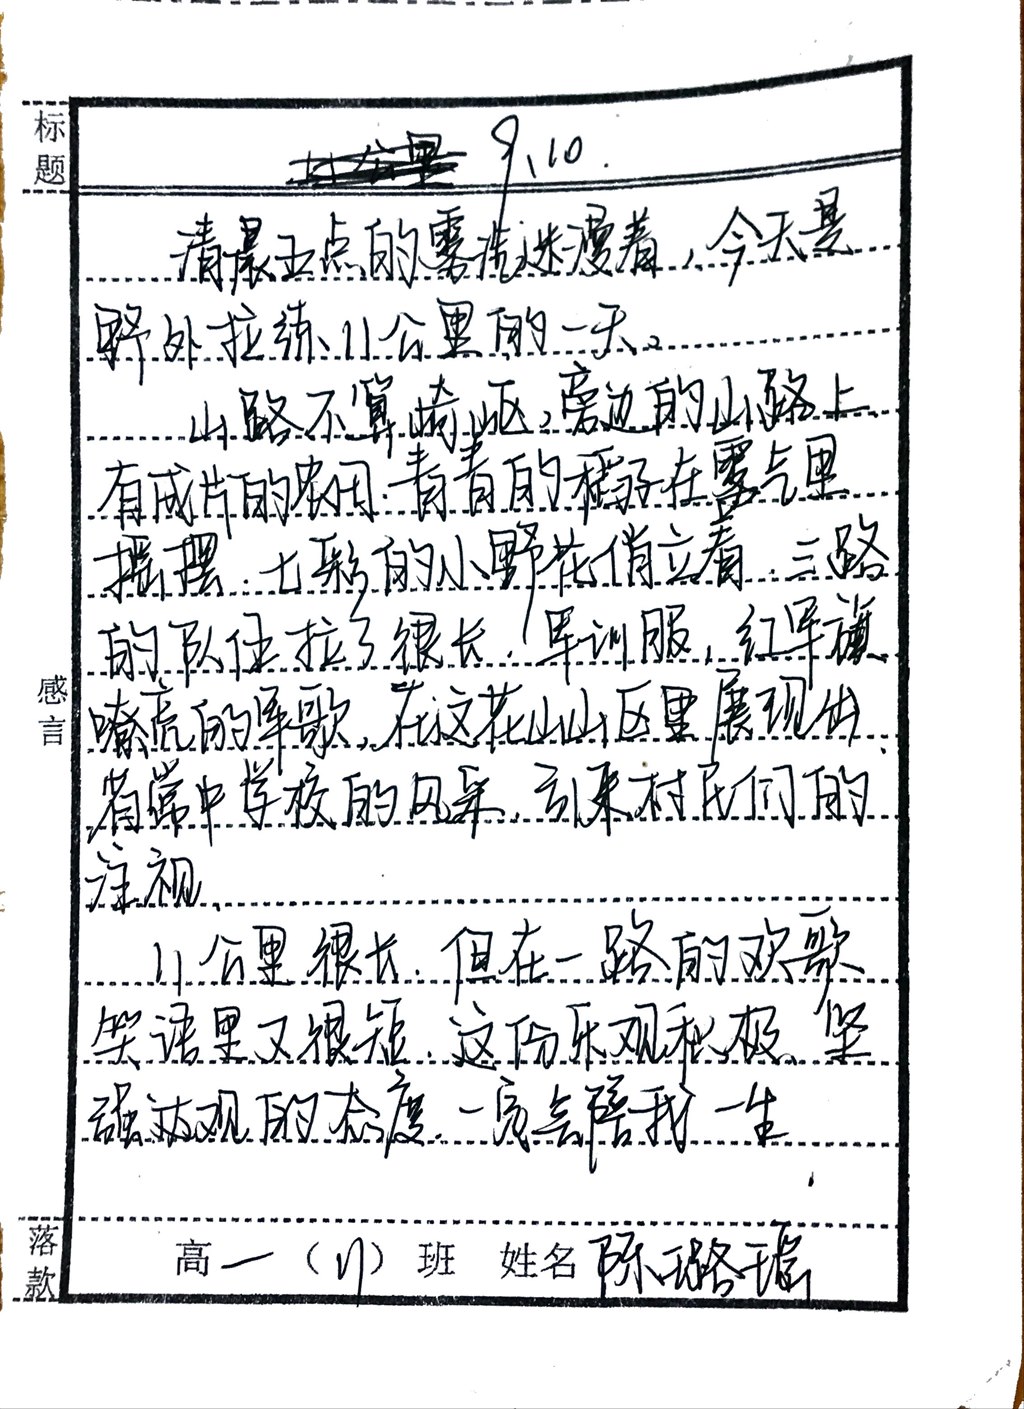 标题
9.10.
清晨五点的雾洗迷漫着，今天是
野外拉练11公里的一天。
山路不算崎岖，旁边的山路上
有成片的农田．青青的稻子在雾气里
摇摆．七彩的小野花俏立着．三路
的队伍拉了很长．军训服，红军旗
嘹亮的军歌，在这花山山区里展现出
省常中学校的风采．引来村民们的
注视．
11公里很长．但在一路的欢歌
笑语里又很短．这份乐观积极、坚
强达观的态度．一定会陪我一生
感言
落款
高一（11）班 姓名陈璐瑶